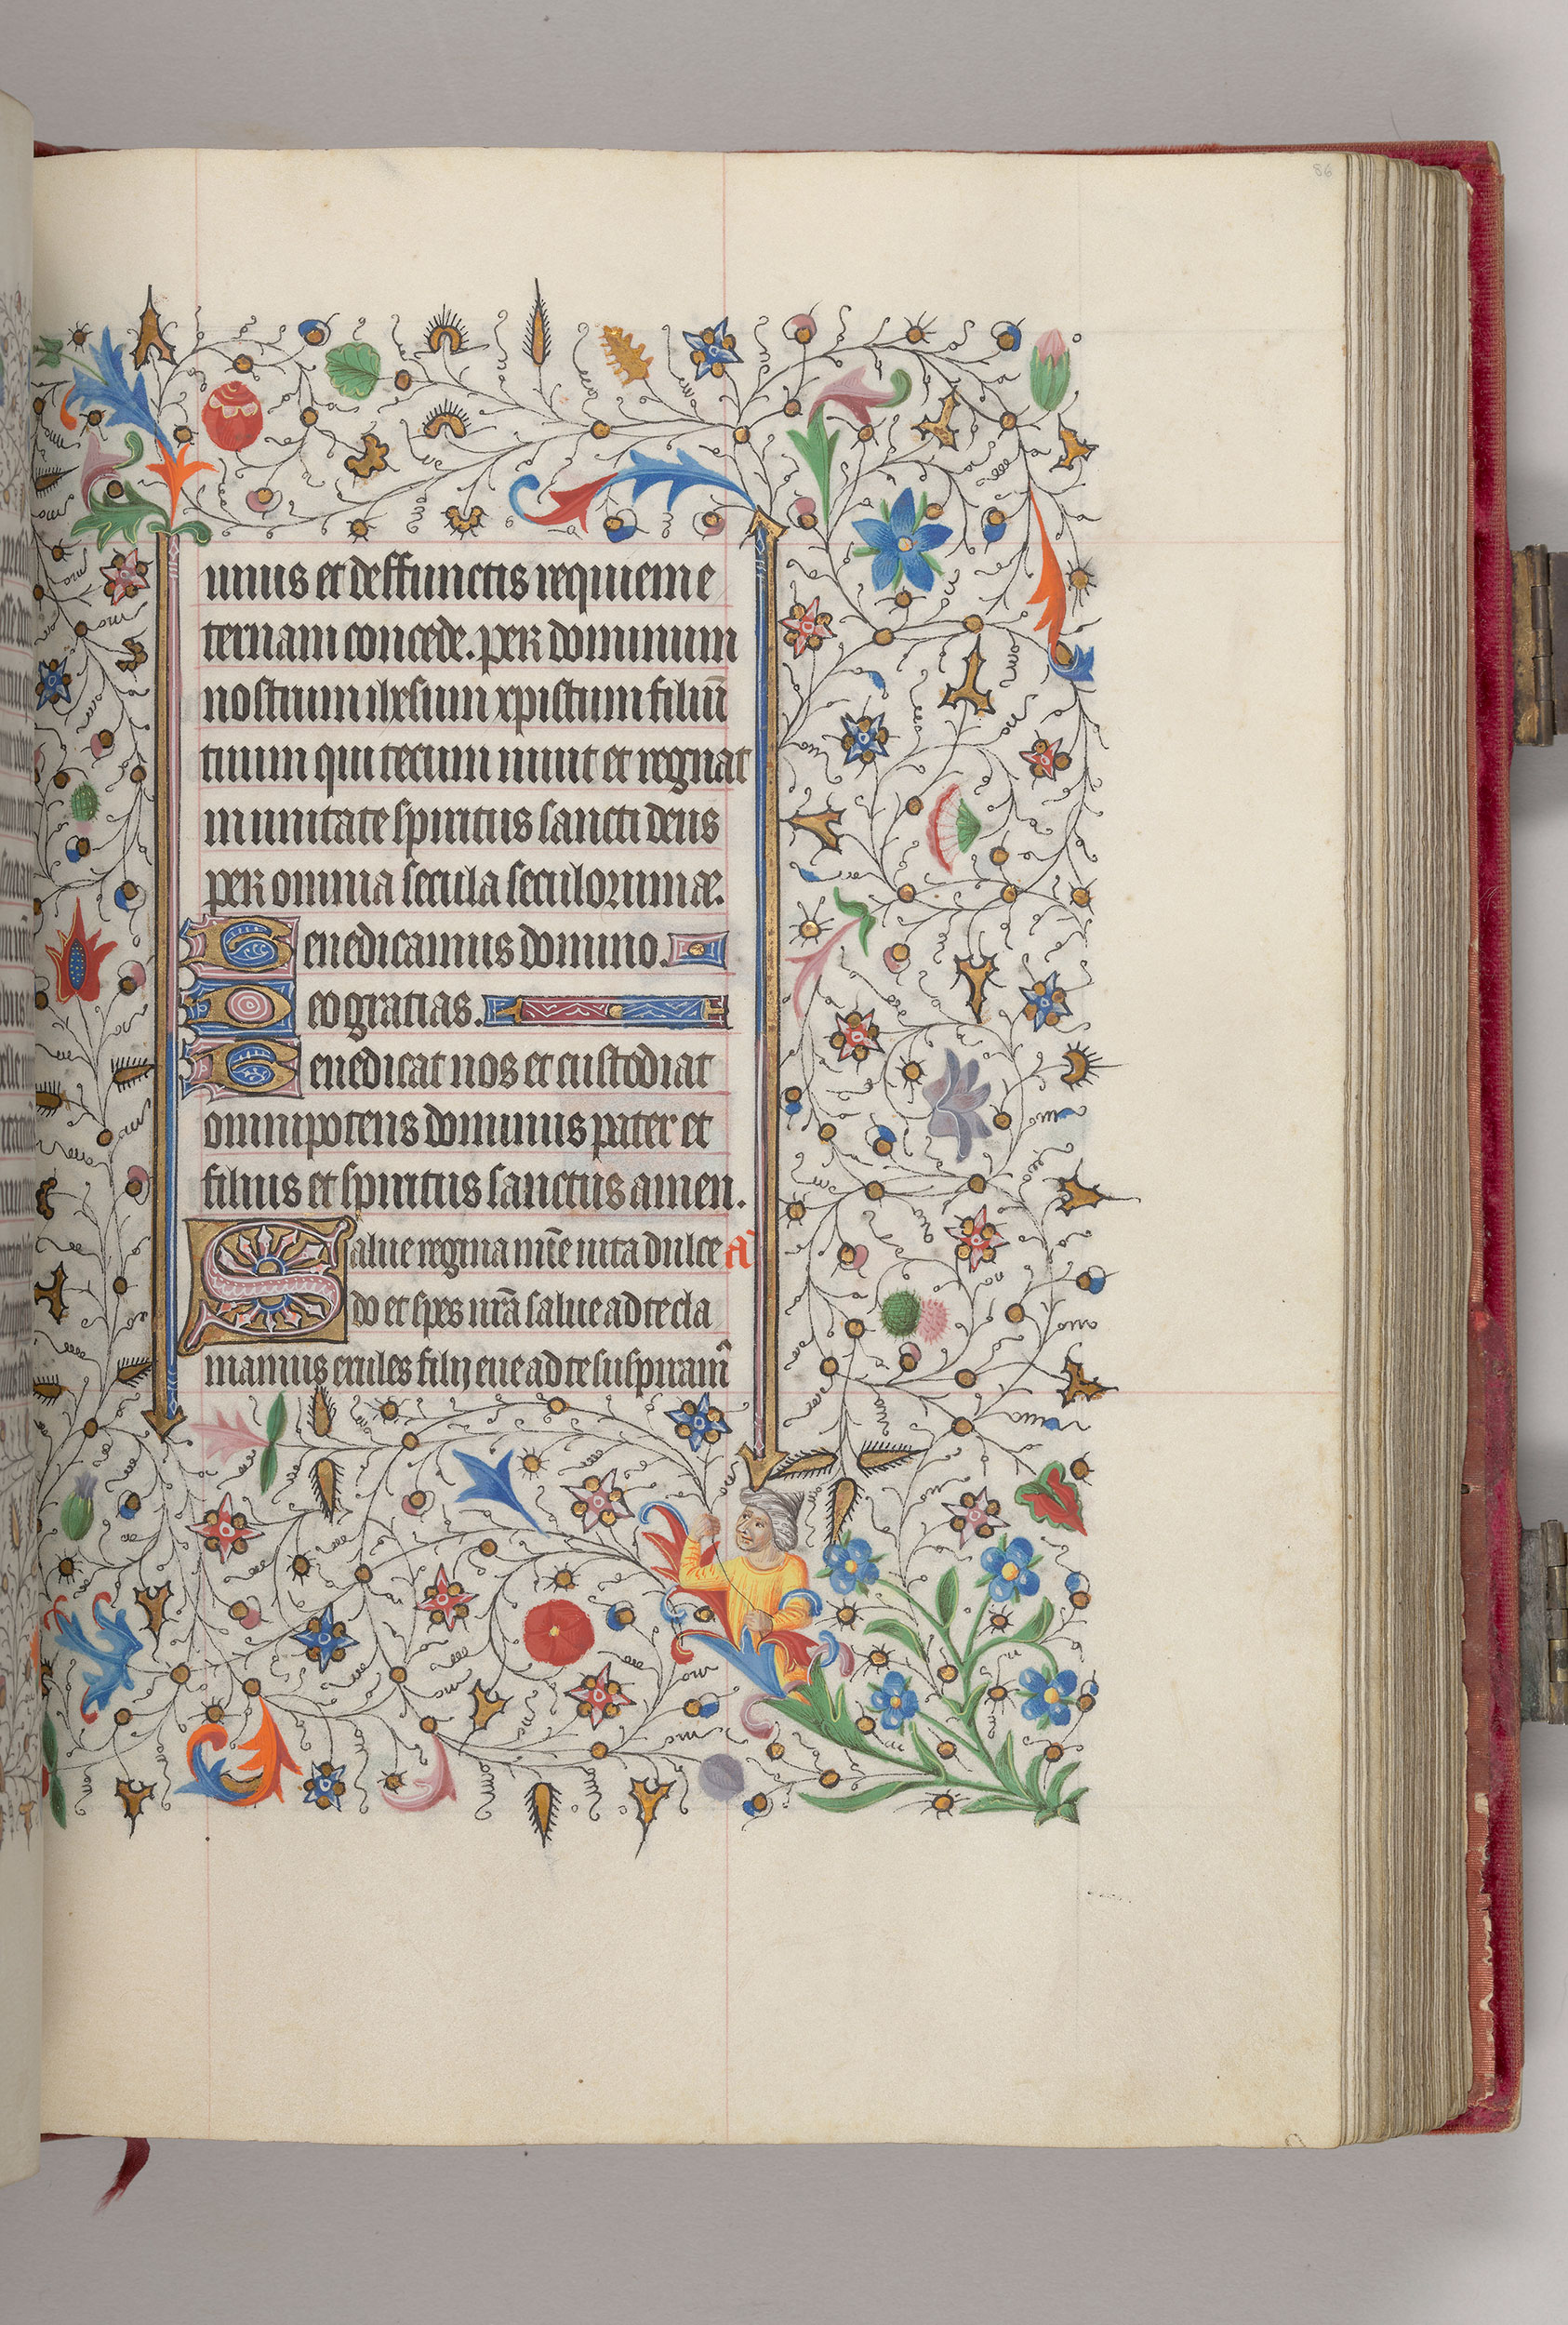 86
unius et deffunctis requiem e
ternam concede. per dominum
nostrum ihesum xpistum filiū
tuum qui tecum uiuit et regnat
in unitate spiritus sancti deus
per omnia secula seculorum æ.
Benedicamus domino.
Deo gratias.
Benedicat nos et custodiat
omnipotens dominus pater et
filius et spiritus sanctus amen.
Salue regina mīe uita dulce a
do et spes nrā salue ad te cla
mamus exules filij eue ad te suspiram᷒